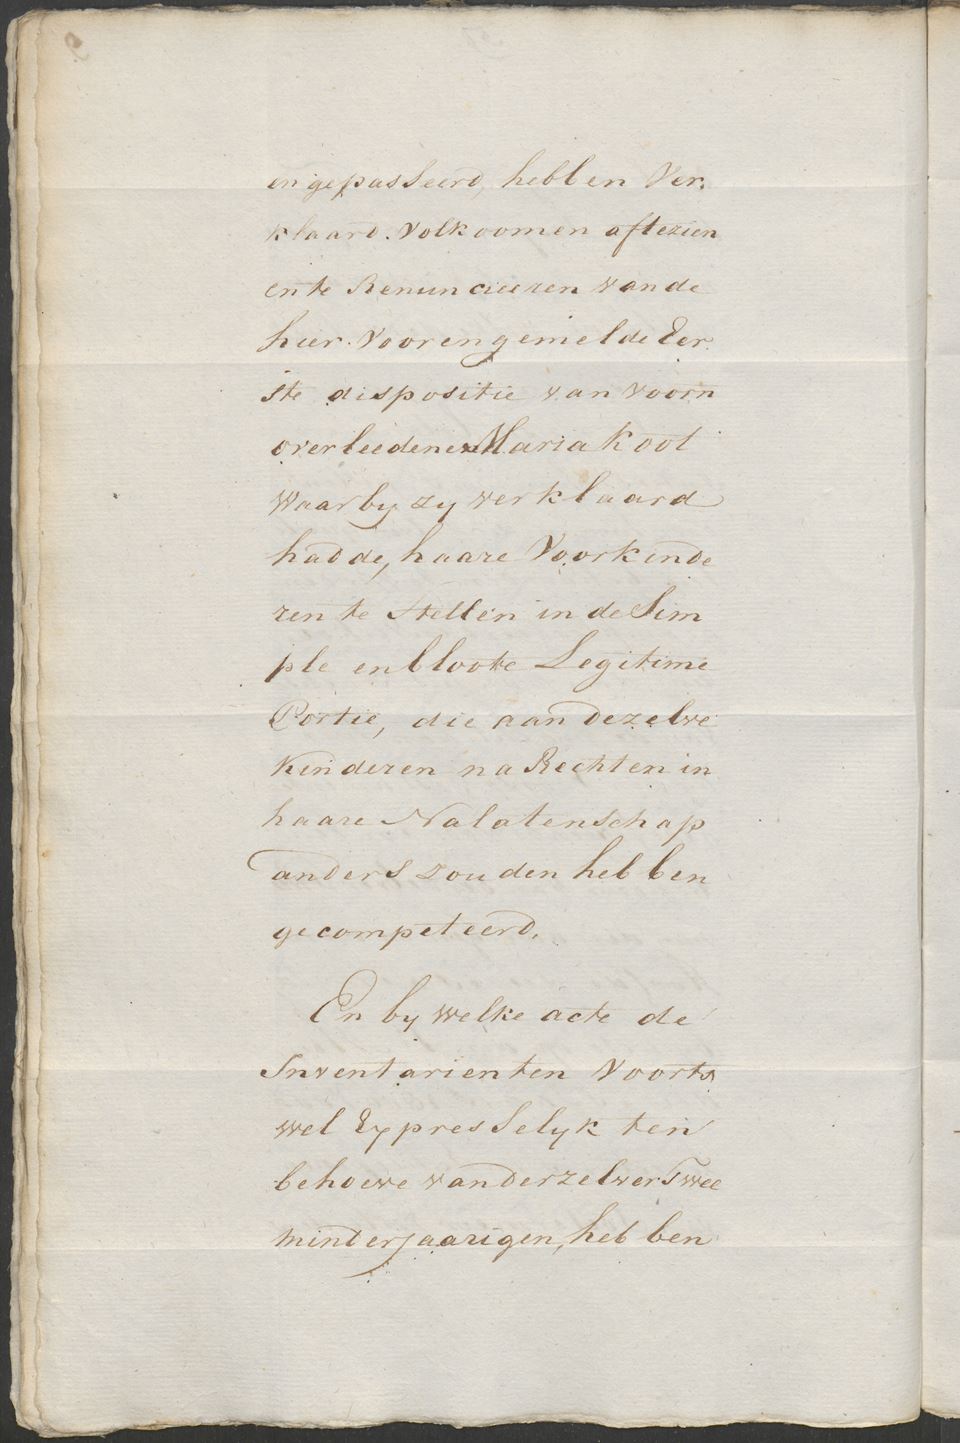 en gepasseerd, hebben Ver,
klaard. Volkoomen aftezien
en te Renuncieeren van de
hier. Vooren gemelde Eer
ste dispositie van voorn
overleedene Maria Kool
waarby zy verklaard
hadde, haare Voorkinde
ren te Stellen in de Sim
ple en bloote Legitime
Portie, die aan dezelve
Kinderen na Rechten in
haare Nalatenschap
anders zouden hebben
gecompeteerd.
En by welke acte de
Inventarienten Voorts
wel Expresselyk ten
behoeve van derzelver Twee
minderjaarigen, hebben